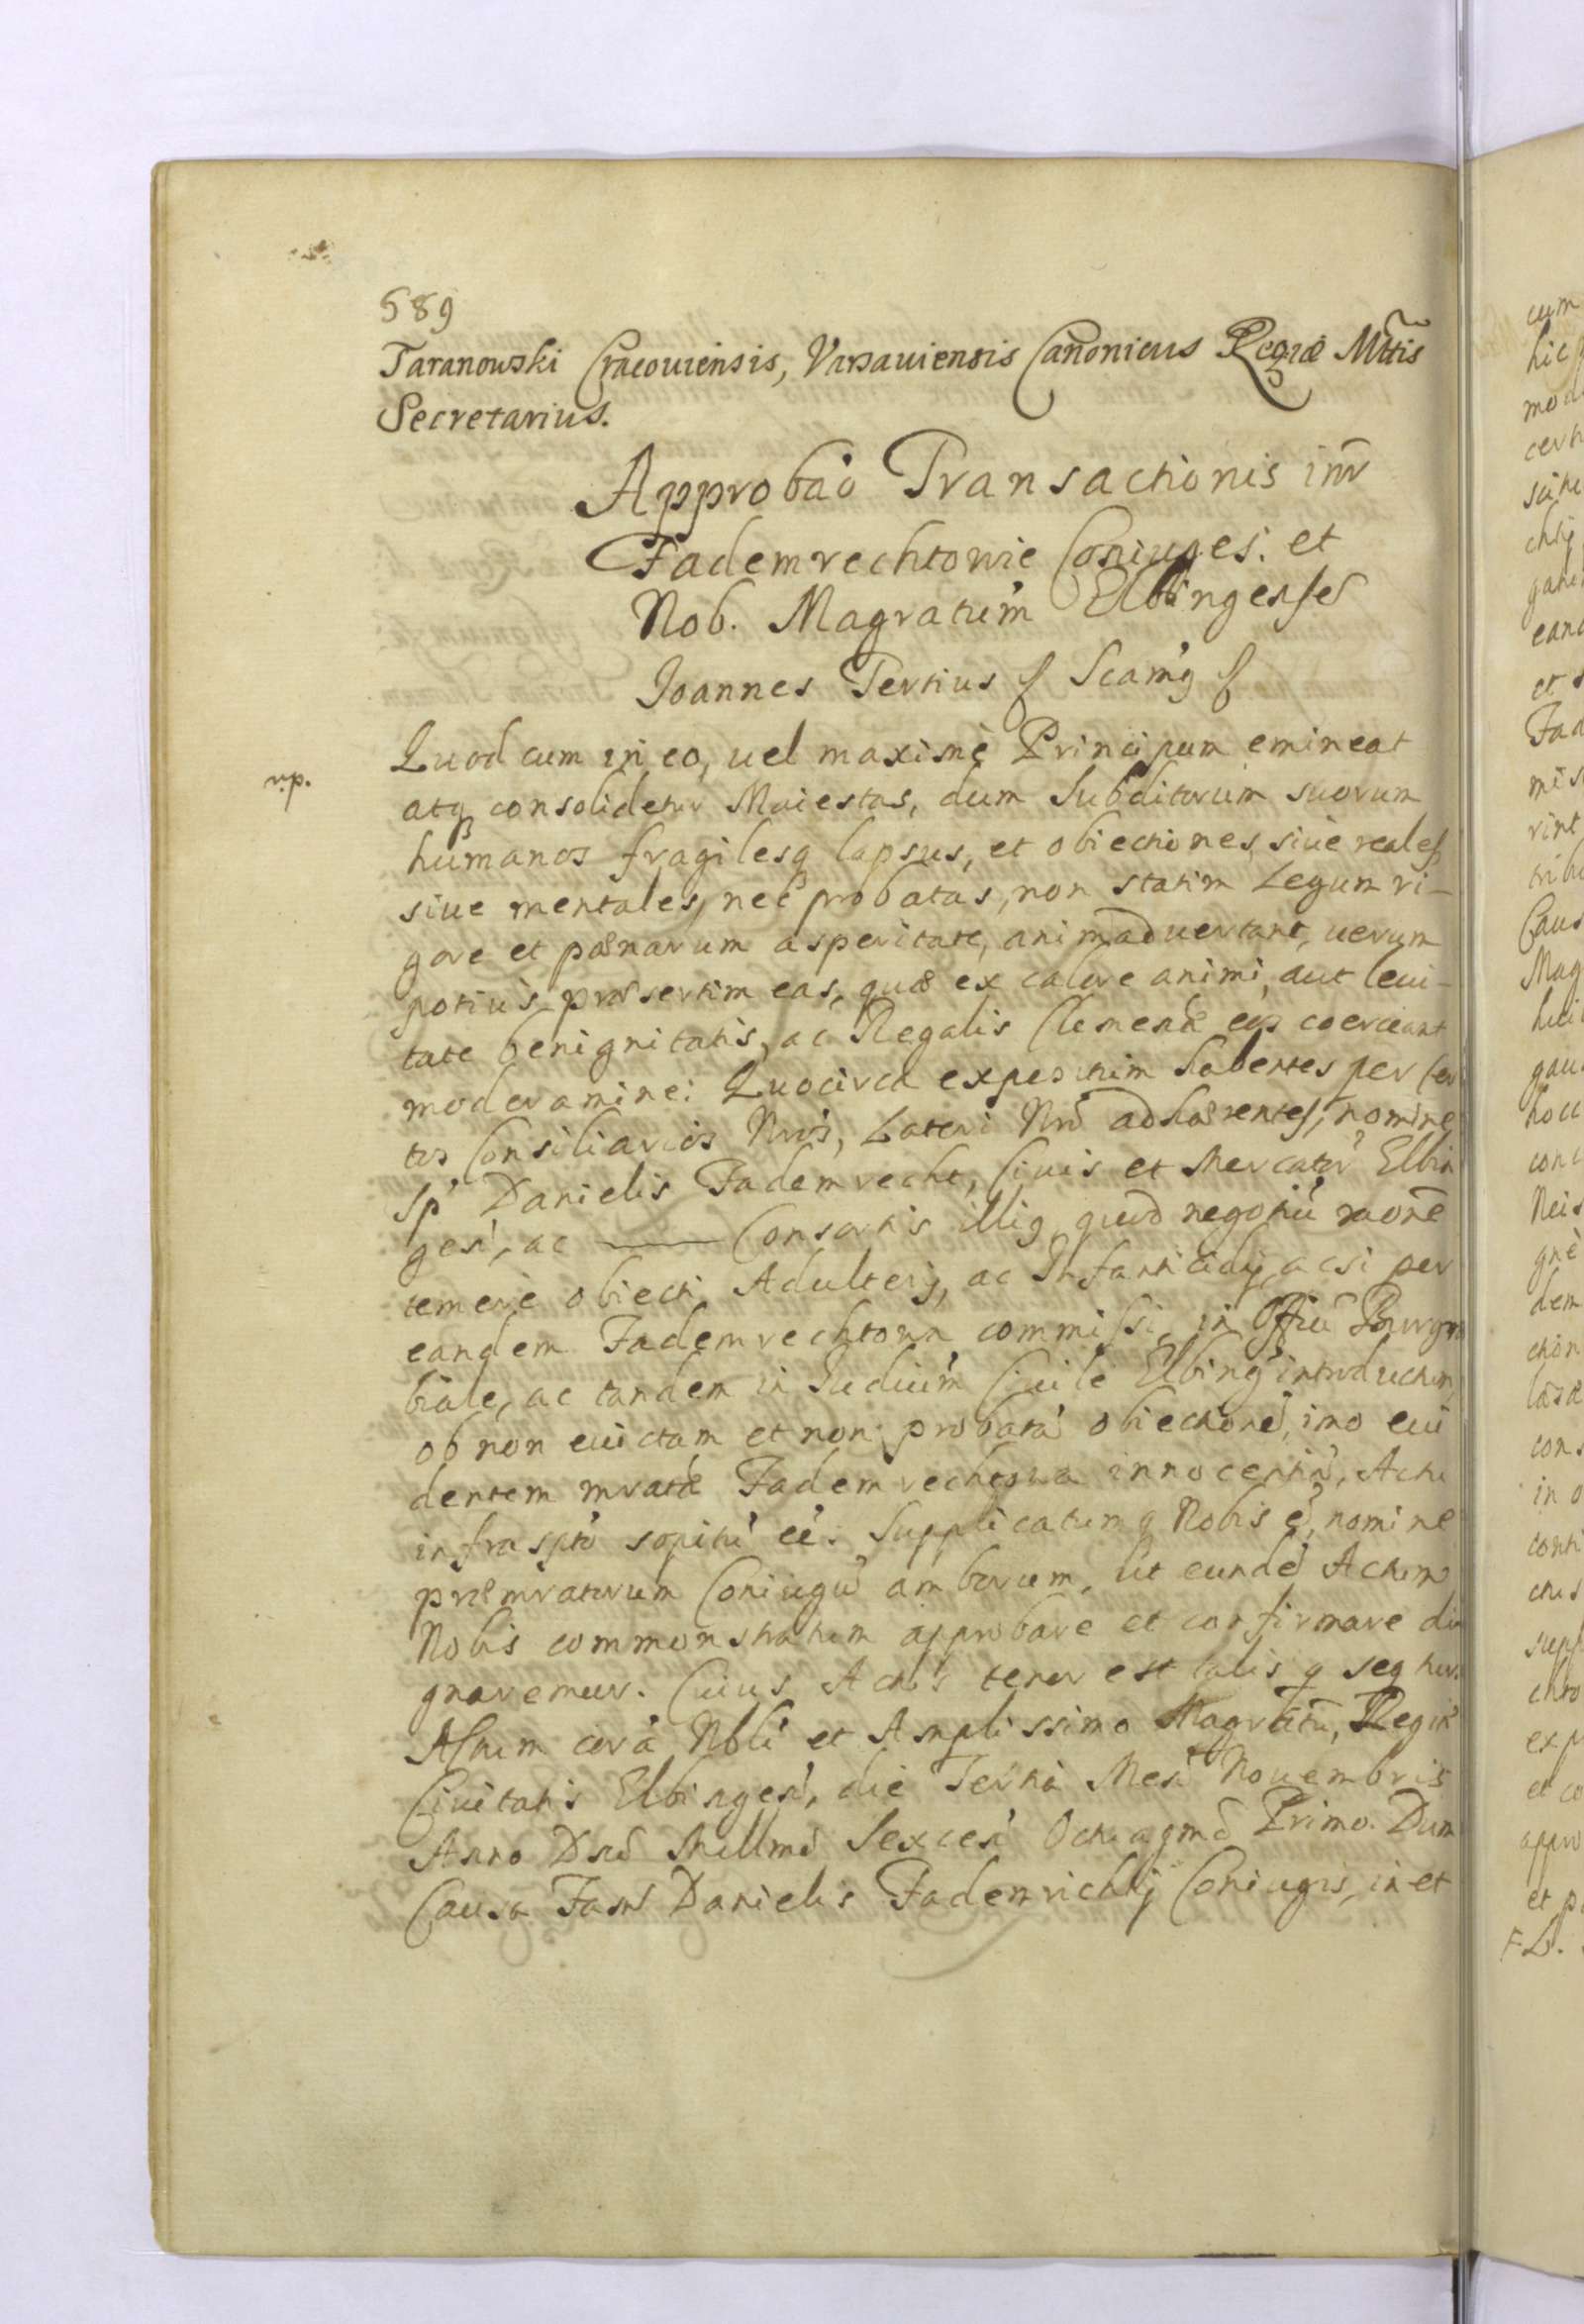 589
Taranowski Cracouiensis, Varsauiensis Canonicus Regiæ Mttis
Secretarius.
Approbaõ Transactionis intr
Fademrechtowie Coniuges. et
Nob. Magratum Elbingenses
Joannes Tertius Scamg
Quod cum in eo, uel maximè Principum emineat
atq consolidetur Maiestas, dum Subditorum suorum
humanos fragilesq lapsus, et obiectiones, siue reales,
siue mentales, nec probatas, non statim Legum ri-
gore et pœnarum asperitate, animaduertant, uerum
potius præsertim eas, quæ ex calore animi, aut leui-
tate benignitatis, ac Regalis Clementæ eos coerceant
moderamine: Quocirca expositum habentes per cer
tos Consiliarios Nros, Lateri Nro adhærentes, nomine
Sp Danielis Fademrecht, Ciuis et Mercator Elbin
gen, ac Consortis illig, quod negotiu raone
temerè obiecti Adulterij, ac Infanticidij, acsi per
eandem Fademrechtowa commissi, in Offiu Burgra
biale, ac tandem in Judicium Ciuile Elbing introductum
ob non euictam et non probata obiectione, imo eui
dentem mratæ Fademrechtowa innocentia, Actu
infraspto sopitu eé: Supplicatumq Nobis e, nomine
præmratorum Coniugu amborum, ut eunde Actum
Nobis commonstratum approbare et confirmare di
gnaremur. Cuius Actus tenor est talis q seqtur.
Actum corà Nbli et Amplissimo Magratu, Regiæ
Ciuitatis Elbingen, die Tertia Men Nouembris
Anno Dnõ Millmõ Sexcen Octuagmõ Primo. Dum
Causa Fam Danielis Fademrichtij Coniugis, in et